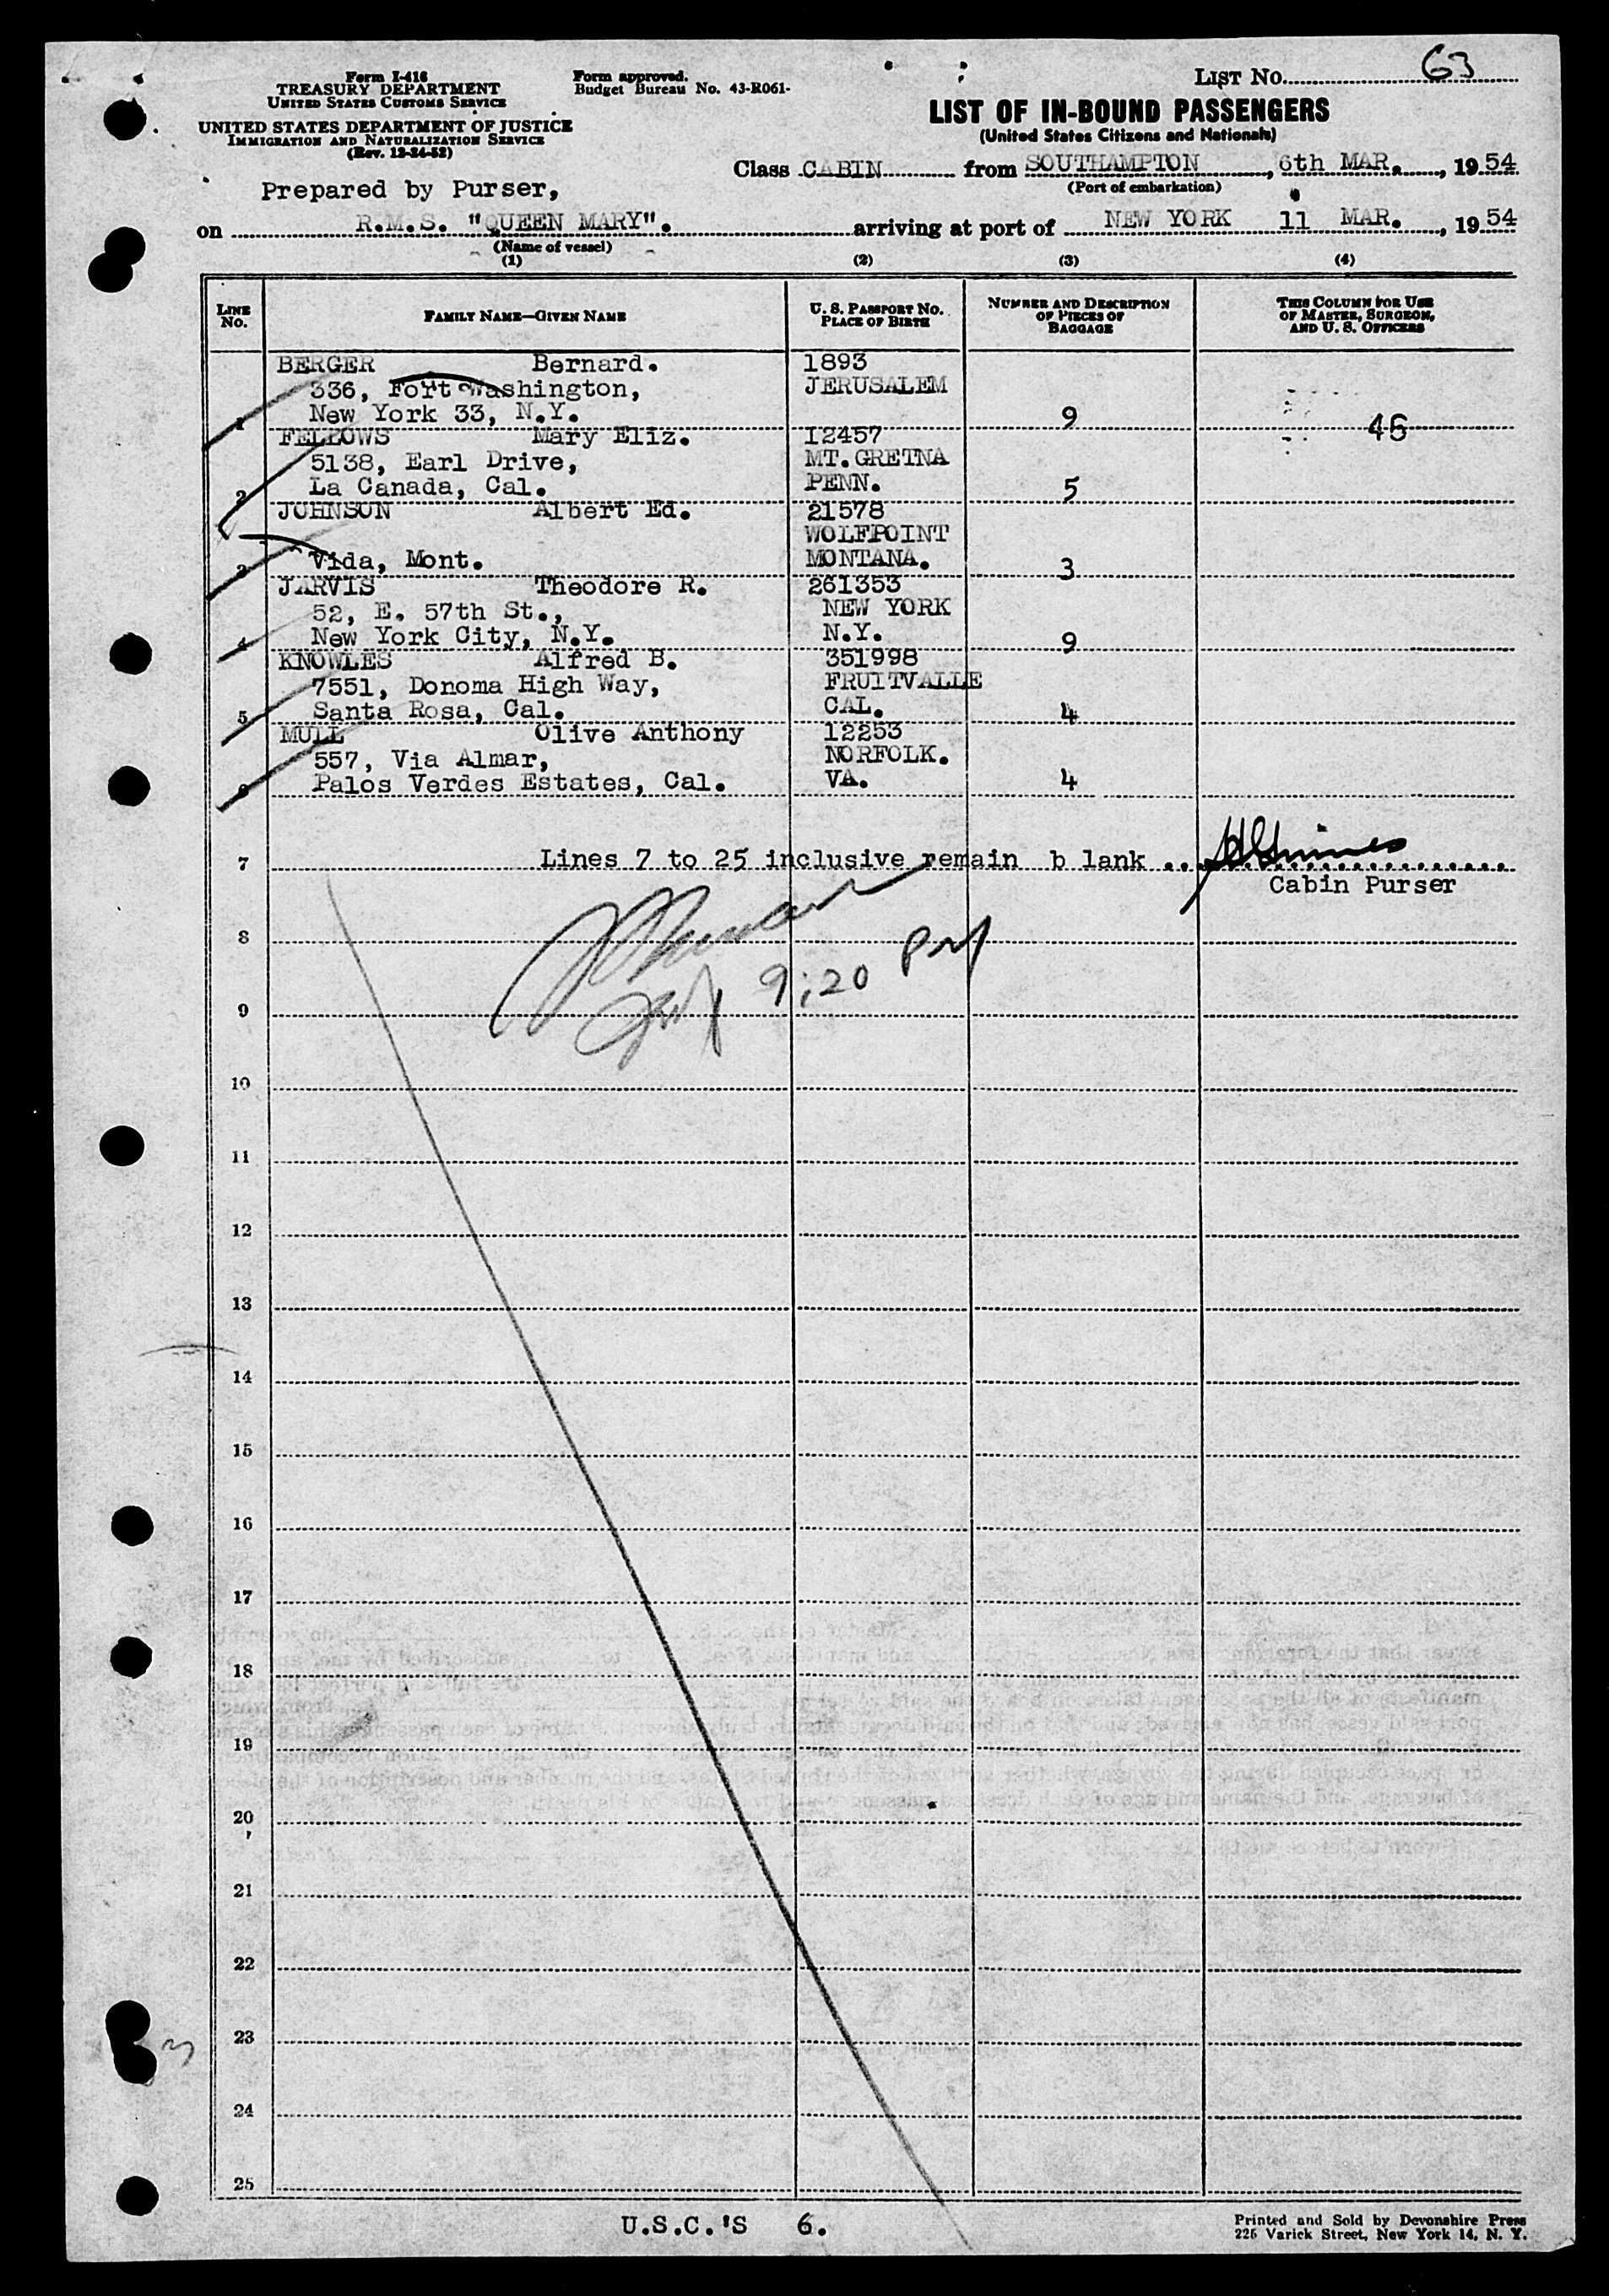 Form I-416
TREASURY DEPARTMENT
UNITED STATES CUSTOMS SERVICE
UNITED STATES DEPARTMENT OF JUSTICE
IMMIGRATION AND NATURALIZATION SERVICE
(Rev. 12-24-52)
Form approved.
Budget Bureau No. 43-R061-
LIST No. 63
LIST OF IN-BOUND PASSENGERS
(United States Citizens and Nationals)
Class CABIN from SOUTHAMPTON, 6th MAR., 1954
(Port of embarkation)
Prepared by Purser,
on R.M.S. "QUEEN MARY". arriving at port of NEW YORK 11 MAR., 1954
(Name of vessel)
(1) (2) (3) (4)
LINE No. FAMILY NAME—GIVEN NAME U. S. PASSPORT No. PLACE OF BIRTH NUMBER AND DESCRIPTION OF PIECES OF BAGGAGE THIS COLUMN FOR USE OF MASTER, SURGEON, AND U. S. OFFICERS
BERGER Bernard. 1893
336, Fort Washington, JERUSALEM
1 New York 33, N.Y. 9 46
FELLOWS Mary Eliz. 12457
5138, Earl Drive, MT. GRETNA
2 La Canada, Cal. PENN. 5
JOHNSON Albert Ed. 21578
WOLFPOINT
3 Vida, Mont. MONTANA. 3
JARVIS Theodore R. 261353
52, E. 57th St., NEW YORK
4 New York City, N.Y. N.Y. 9
KNOWLES Alfred B. 351998
7551, Donoma High Way, FRUITVALLE
5 Santa Rosa, Cal. CAL. 4
MULL Olive Anthony 12253
557, Via Almar, NORFOLK.
6 Palos Verdes Estates, Cal. VA. 4
7 Lines 7 to 25 inclusive remain b lank ...
Cabin Purser
8
9:20 PM
9
10
11
12
13
14
15
16
17
18
19
20
21
22
23
24
25
U.S.C.'S 6.
Printed and Sold by Devonshire Press
225 Varick Street, New York 14, N. Y.